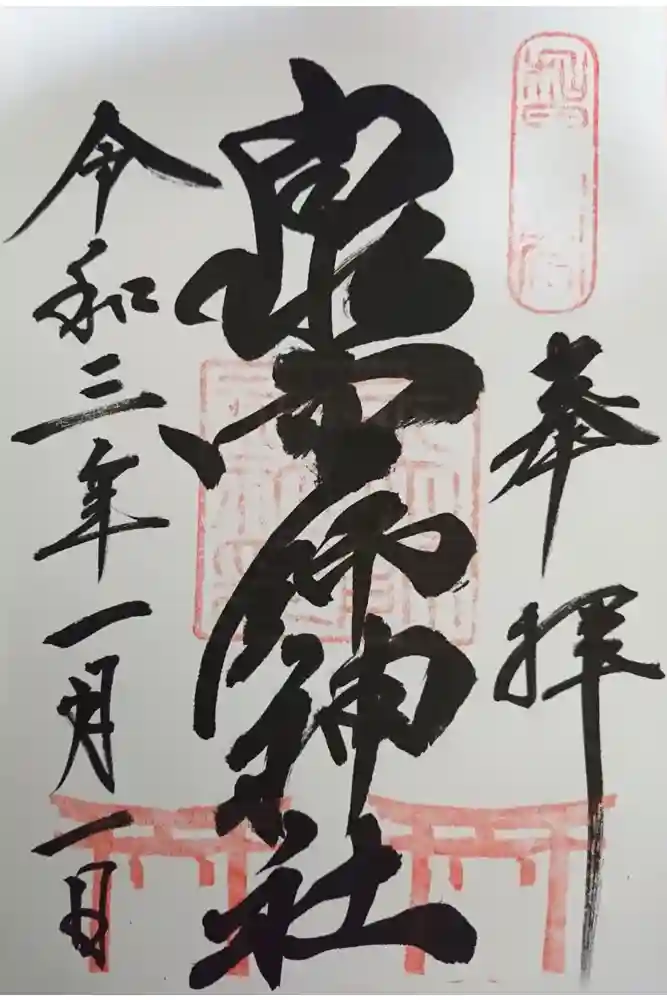 奉拝
泉穴師神社
令和三年一月一日